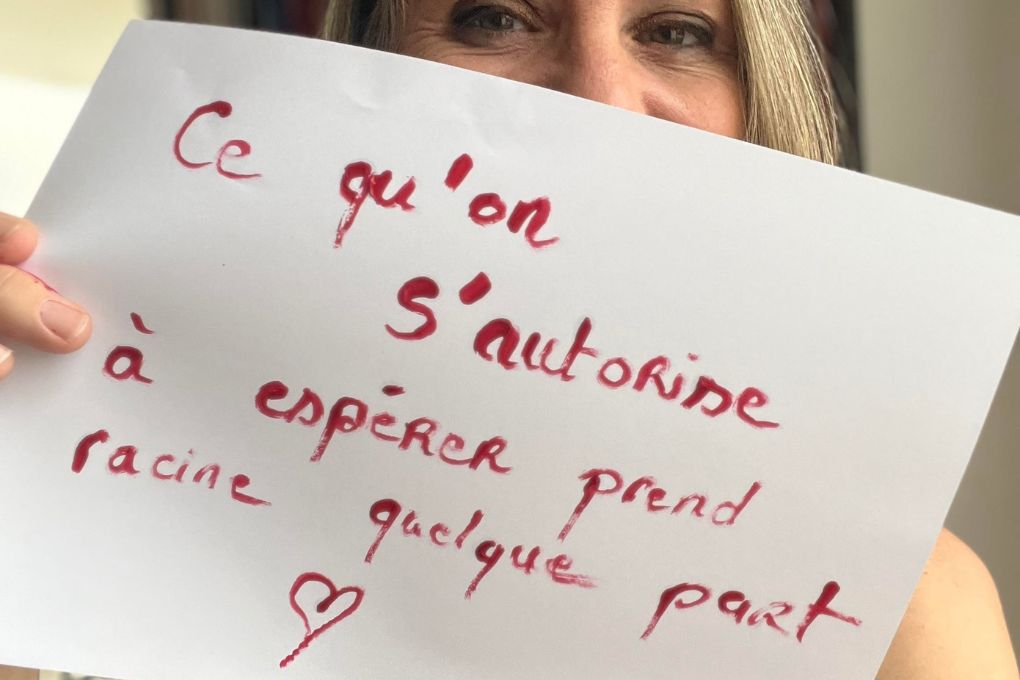 Ce qu'on
s'autorise
à espérer prend
racine quelque part